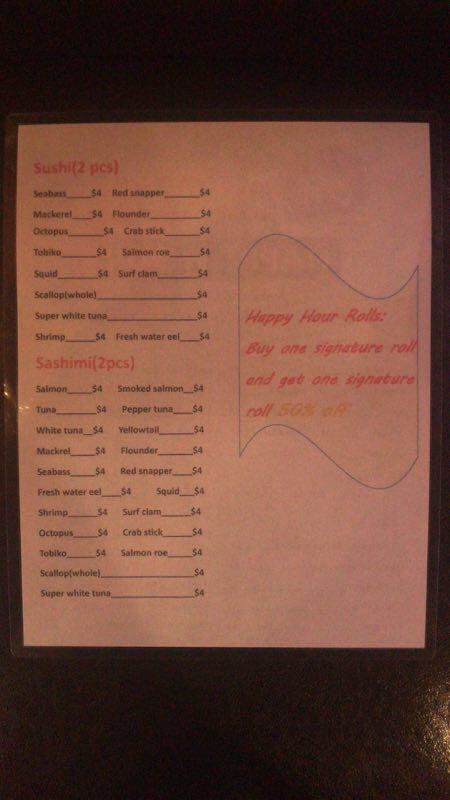 Sushi(2 pcs)
Seabass_____$4 Red snapper_______$4
Mackerel____$4 Flounder__________$4
Octopus_______$4 Crab stick_______$4
Tobiko_______$4 Salmon roe______$4
Squid________$4 Surf clam________$4
Scallop(whole)____________________$4
Super white tuna__________________$4
Shrimp______$4 Fresh water eel____$4
Sashimi(2pcs)
Salmon_____$4 Smoked salmon__$4
Tuna________$4 Pepper tuna____$4
White tuna__$4 Yellowtail_______$4
Mackrel_____$4 Flounder_______$4
Seabass_____$4 Red snapper____$4
Fresh water eel____$4 Squid___$4
Shrimp______$4 Surf clam______$4
Octopus_____$4 Crab stick______$4
Tobiko______$4 Salmon roe_____$4
Scallop(whole)___________________$4
Super white tuna_________________$4
Happy Hour Rolls:
Buy one signature roll
and get one signature
roll 50% off